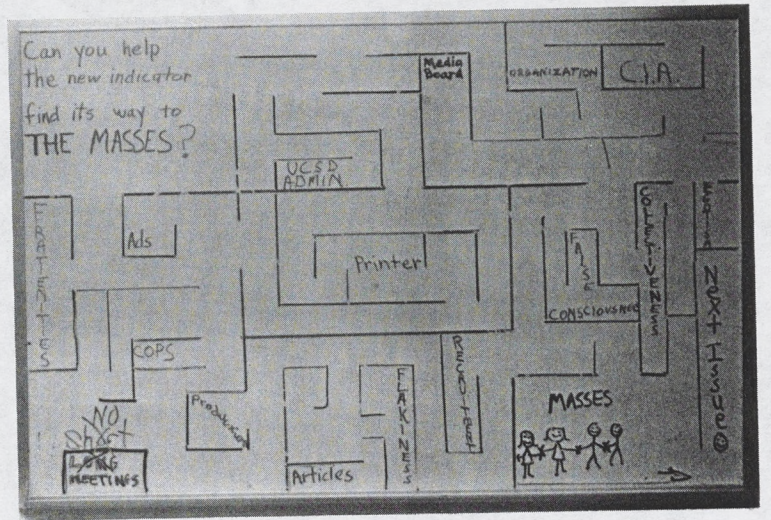 Can you help
the new indicator
find its way to
THE MASSES?
Media
Board
ORGANIZATION
C.I.A.
UCSD
ADMIN
FRATERTIES
Ads
Printer
FALSE
CONSCIOUSNESS
COLECTIVENESS
NEXT ISSUE
COPS
Produktion
RECRUITERS
FLAKINESS
MASSES
NO
Short
LONG
MEETINGS
Articles